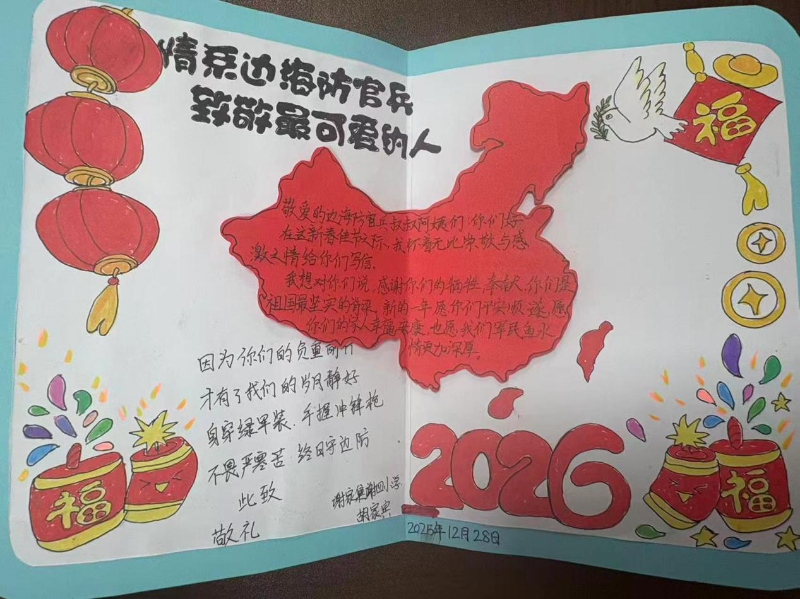 情系边海防官兵
致敬最可爱的人
福
敬爱的边海防官兵叔叔阿姨们:你们好
在这新春佳节之际,我怀着无比崇敬与感
激之情给你们写信。
我想对你们说,感谢你们的牺牲、奉献,你们是
祖国最坚实的脊梁。新的一年愿你们平安顺遂,愿
你们的家人幸福安康,也愿我们军民鱼水
情更加深厚。
因为你们的负重前行
才有了我们的岁月静好
身穿绿军装,手握冲锋枪
不畏严寒苦 终日守边防
此致
敬礼
谢家集第四小学
胡家
2026
2025年12月28日
福
福